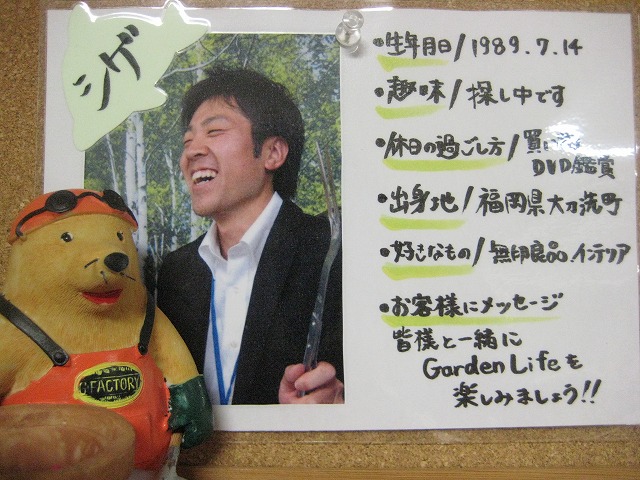 シゲ
・生年月日/1989.7.14
・趣味/探し中です
・休日の過ごし方/買い
DVD鑑賞
・出身地/福岡県大刀洗町
・好きなもの/無印良品.インテリア
・お客様にメッセージ
皆様と一緒に
Garden Lifeを
楽しみましょう!!
FACTORY